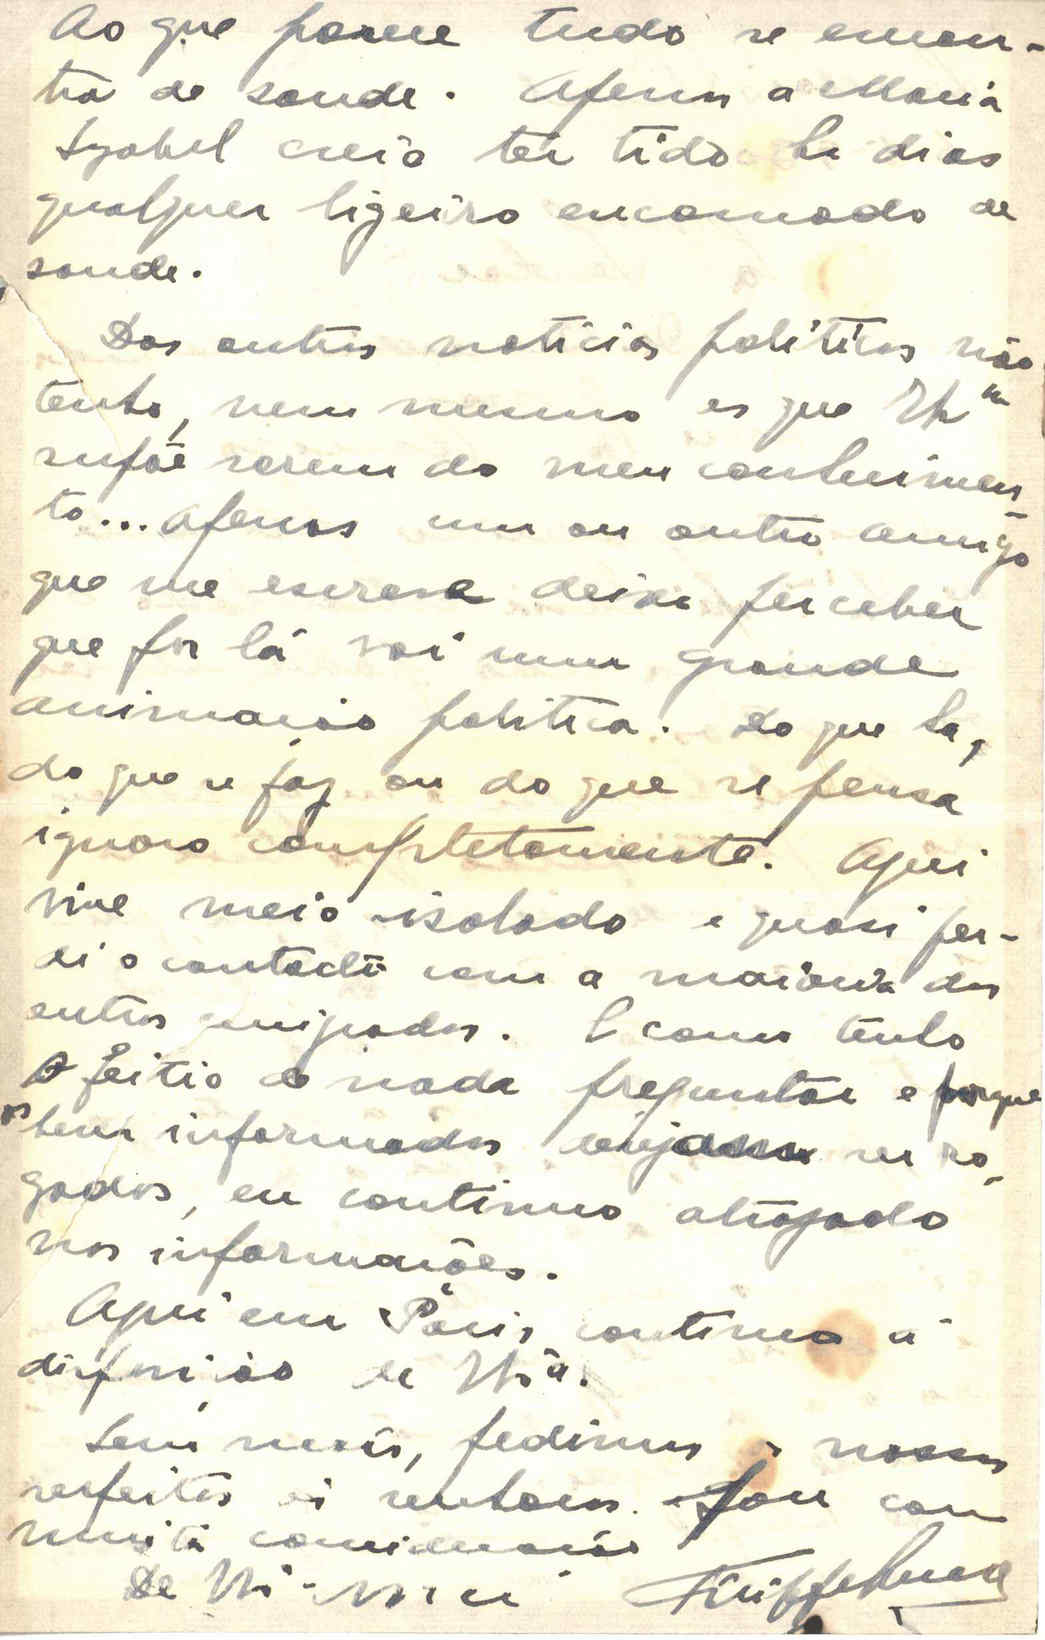 Ao que parece tudo se encon-
tra de saude. Apenas a Maria
Izabel creio ter tido ha dias
qualquer ligeiro encomodo de
saude.
Das outras noticias politicas não
tenho, nem mesmo as que
supõe serem do meu conhecimen-
to... Apenas um ou outro amigo
que me escreve deixa perceber
que por lá vai uma grande
animação politica. Do que ha,
do que se faz ou do que se pensa
ignoro completamente. Aqui
vive meio isolado e quasi per-
di o contacto com a maioria dos
outros emigrados. E como tenho
o feitio de nada preguntar e porque
os bem informados desejam ser ro-
gados, eu continuo atrazado
nas informações.
Aqui em Paris continuo á
disposição de
Sem mais, pedimos nossos
respeitos Sou com
muita consideração
De